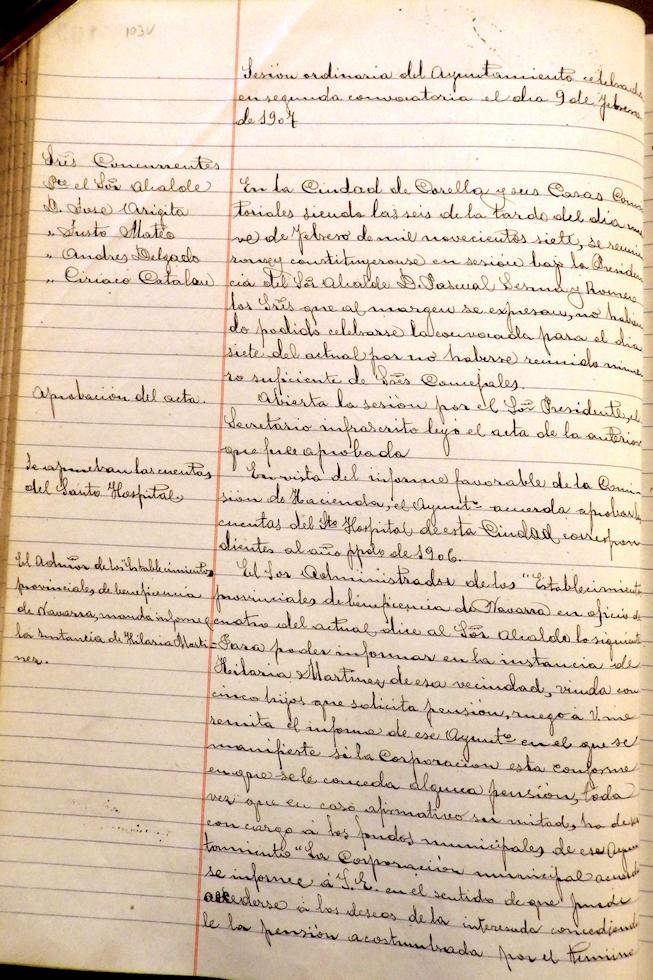 103v
Sesión ordinaria del Ayuntamiento celebrada
en segunda convocatoria el dia 9 de Febrero
de 1907
Sres Concurrentes
Pte el Sor Alcalde
D. Jose Arigita
" Justo Mateo
" Andres Delgado
" Ciriaco Catalan
En la Ciudad de Corella y sus Casas Consis
toriales siendo las seis de la tarde del dia nue
ve de Febrero de mil novecientos siete, se reunie
ron y constituyeronse en sesión bajo la Presiden
cia del Sor Alcalde D. Pascual Sesma y Romero
los Sres que al margen se expresan, no habien
do podido celebrarse la convocada para el dia
siete del actual por no haberse reunido nume
ro suficiente de Sres Concejales.
Aprobación del acta.
Abierta la sesión por el Sor Presidente, el
Secretario infrascrito leyó el acta de la anterior
que fue aprobada
Se aprueban las cuentas
del Santo Hospital
En vista del informe favorable de la Comi
sión de Hacienda, el Ayuntº acuerda aprobar las
cuentas del Sto Hospital de esta Ciudad correspon
dientes al año ppdo de 1906.
El Admor de los Establecimientos
provinciales de beneficencia
de Navarra, manda informe
la instancia de Hilaria Marti-
nez.
El Sor Administrador de los "Establecimientos
provinciales de beneficencia de Navarra en oficio de
cuatro del actual dice al Sor Alcalde lo siguiente
Para poder informar en la instancia de
Hilaria Martinez, de esa vecindad, viuda con
cinco hijos que solicita pensión, ruego á V. me
remita el informe de ese Ayuntº en el que se
manifieste si la Corporación esta conforme
en que se le conceda alguna pensión, toda
vez que en caso afirmativo su mitad, ha de ser
con cargo á los fondos municipales de ese Ayun
tamiento" La Corporación municipal acuerda
se informe á S.E. en el sentido de que puede
accederse á los deseos de la interesada concediendo
le la pensión acostumbrada por el termino